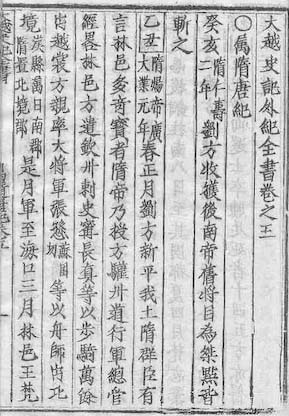 大越史記外紀全書卷之五
○屬隋唐紀
癸亥隋仁壽二年劉方收獲後南帝舊將目為桀黠者
斬之
乙丑隋煬帝廣大業元年春正月劉方新平我土隋群臣有
言林邑多奇寶者隋帝乃授方驩州道行軍總管
經畧林邑方遣欽州刺史甯長真等以步騎萬餘
出越裳方親率大將軍張愻蘇困切等以舟師出比
境漢縣屬日南郡隋置比境郡是月軍至海口三月林邑王梵